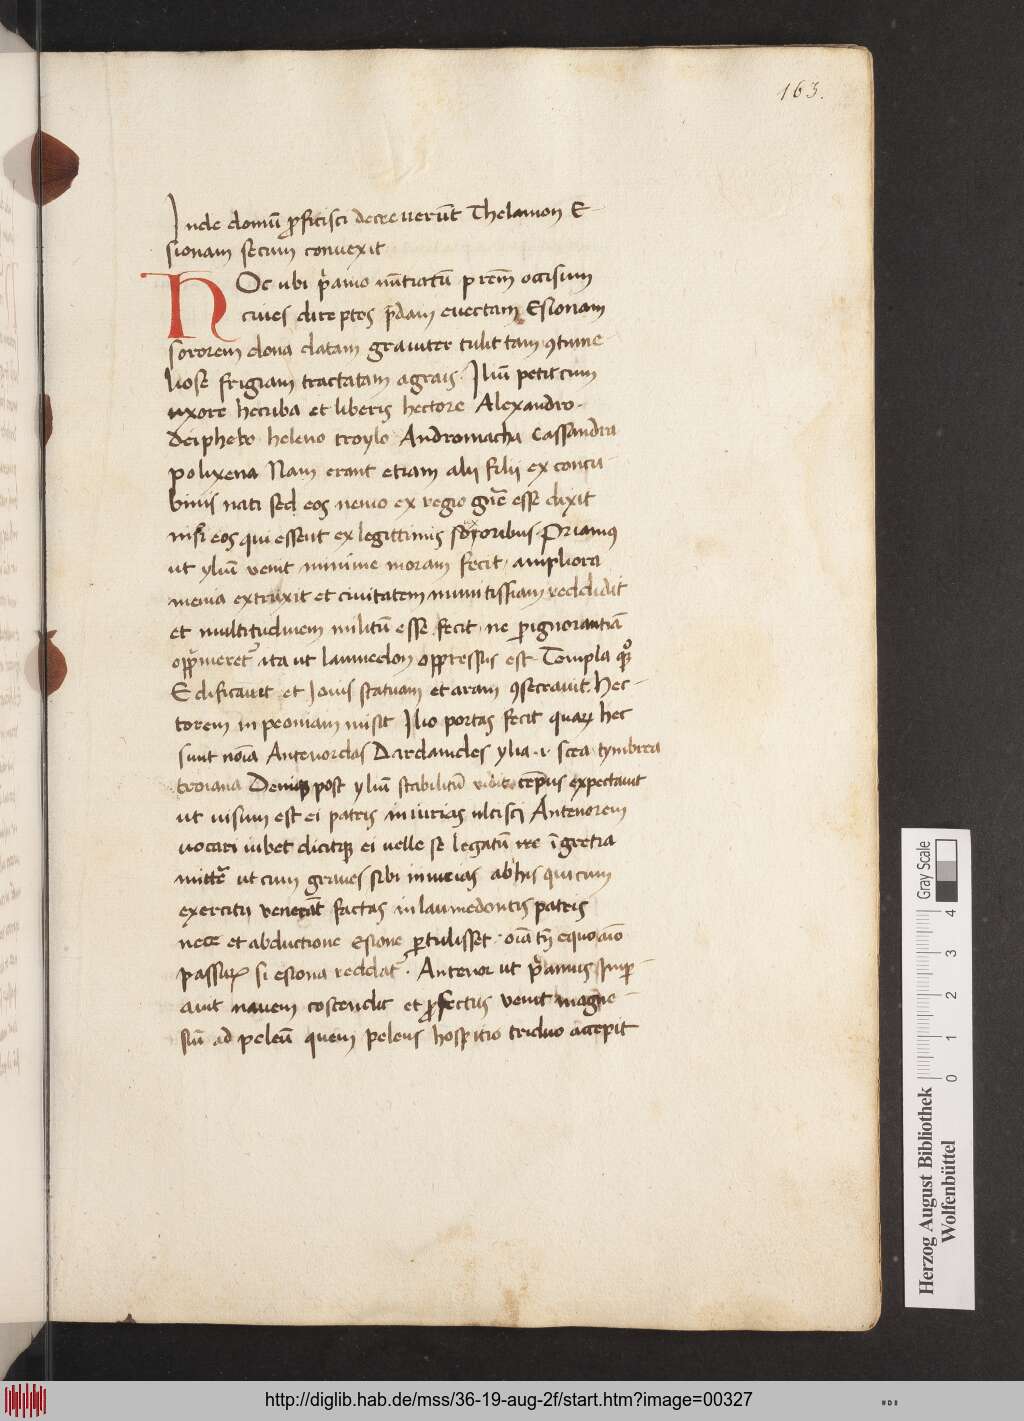 163.
Inde domū ꝓficisci decreuerūt Thelamon E
sionam secum conuexit
HOc ubi pͥamo nūtiatū prem̄ occisum
ciues direptos p̄dam euectam Esionam
sororem dono datam grauiter tulit tam ꝯtume
liose frigiam tractatam agrais Iliū petit cum
uxore hecuba et liberis hectore Alexandro
deiphebo heleno troylo Andromacha Cassandra
polixena Nam erant etiam alij filij ex concu
binis nati sed eos nemo ex regio gn̄e esse dixit
nisi eos qui essent ex legittimis Priamꝰ
ut yliū venit minime moram fecit ampliora
menia extruxit et ciuitatem munitissiam reddidit
et multitudinem militū esse fecit ne ꝑ ignorantiā
opp̄meret᷑ ita ut laumedon oppressus est Templa qͦꝫ
Edificauit et Iouis statuam et aram ꝯsecrauit Hec
torem in peoniam misit Ilio portas fecit quaꝝ hec
sunt noīa Antenordas Dardanides ylia .i. scea tymbrea
troiana Deniqꝫ post yliū stabilitū tempus expectauit
ut uisum est ei patris iniurias ulcisci Antenorem
uocari iubet dicitqꝫ ei uelle se legatū ire ī gretia
mittr̄e ut cum graues sibi iniurias ab his qui cum
exercitu venerāt factas in laumedontis patris
nece et abductione esione ꝑtulisset oīa tn̄ equo aīo
passuꝝ si esiona reddat᷑. Antenor ut pͥamus Impͥ
auit nauem coscendit et ꝓfectus venit magne
siū ad peleū quem peleus hospitio triduo accepit
Gray Scale
0 1 2 3 4
Herzog August Bibliothek
Wolfenbüttel
http://diglib.hab.de/mss/36-19-aug-2f/start.htm?image=00327